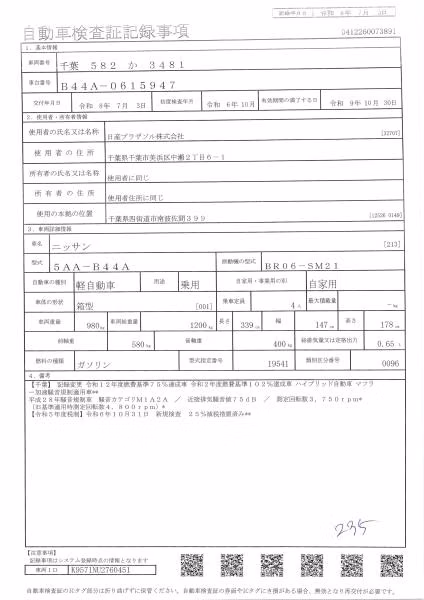 記録年月日 令和 6年 7月 5日
自動車検査証記録事項
0412260073891
1. 基本情報
車両番号 千葉 582 か 3481
車台番号 B44A-0615947
交付年月日 令和 6年 7月 5日 初度検査年月 令和 6年10月 有効期間の満了する日 令和 9年10月30日
2. 使用者・所有者情報
使用者の氏名又は名称 日産プラザソル株式会社 [32707]
使用者の住所 千葉県千葉市美浜区中瀬2丁目6-1
所有者の氏名又は名称 使用者に同じ
所有者の住所 使用者住所に同じ
使用の本拠の位置 千葉県四街道市南波佐間399 [12526 0149]
3. 車両詳細情報
車名 ニッサン [213]
型式 5AA-B44A 原動機の型式 BR06-SM21
自動車の種別 軽自動車 用途 乗用 自家用・事業用の別 自家用
車体の形状 箱型 [001] 乗車定員 4人 最大積載量 -kg
車両重量 980kg 車両総重量 1200kg 長さ 339cm 幅 147cm 高さ 178cm
前軸重 580kg 後軸重 400kg 総排気量又は定格出力 0.65L
燃料の種類 ガソリン 型式指定番号 19541 類別区分番号 0096
4. 備考
【千葉】 記録変更 令和12年度燃費基準75%達成車 令和2年度燃費基準102%達成車 ハイブリッド自動車 マフラ
ー加速騒音規制適用車**
平成28年騒音規制車 騒音カテゴリM1A2A / 近接排気騒音値75dB / 測定回転数3,750rpm*
(旧基準適用時測定回転数4,800rpm)*
【令和5年度税制】令和6年10月31日 新規検査 25%減税措置済み**
235
【注意事項】
記録事項はシステム登録時点の情報となります
車両ID K9571NU2760451
自動車検査証のICタグ部分は折り曲げずに保管ください。自動車検査証の券面やICタグにき損がある場合、無効となり再交付が必要です。